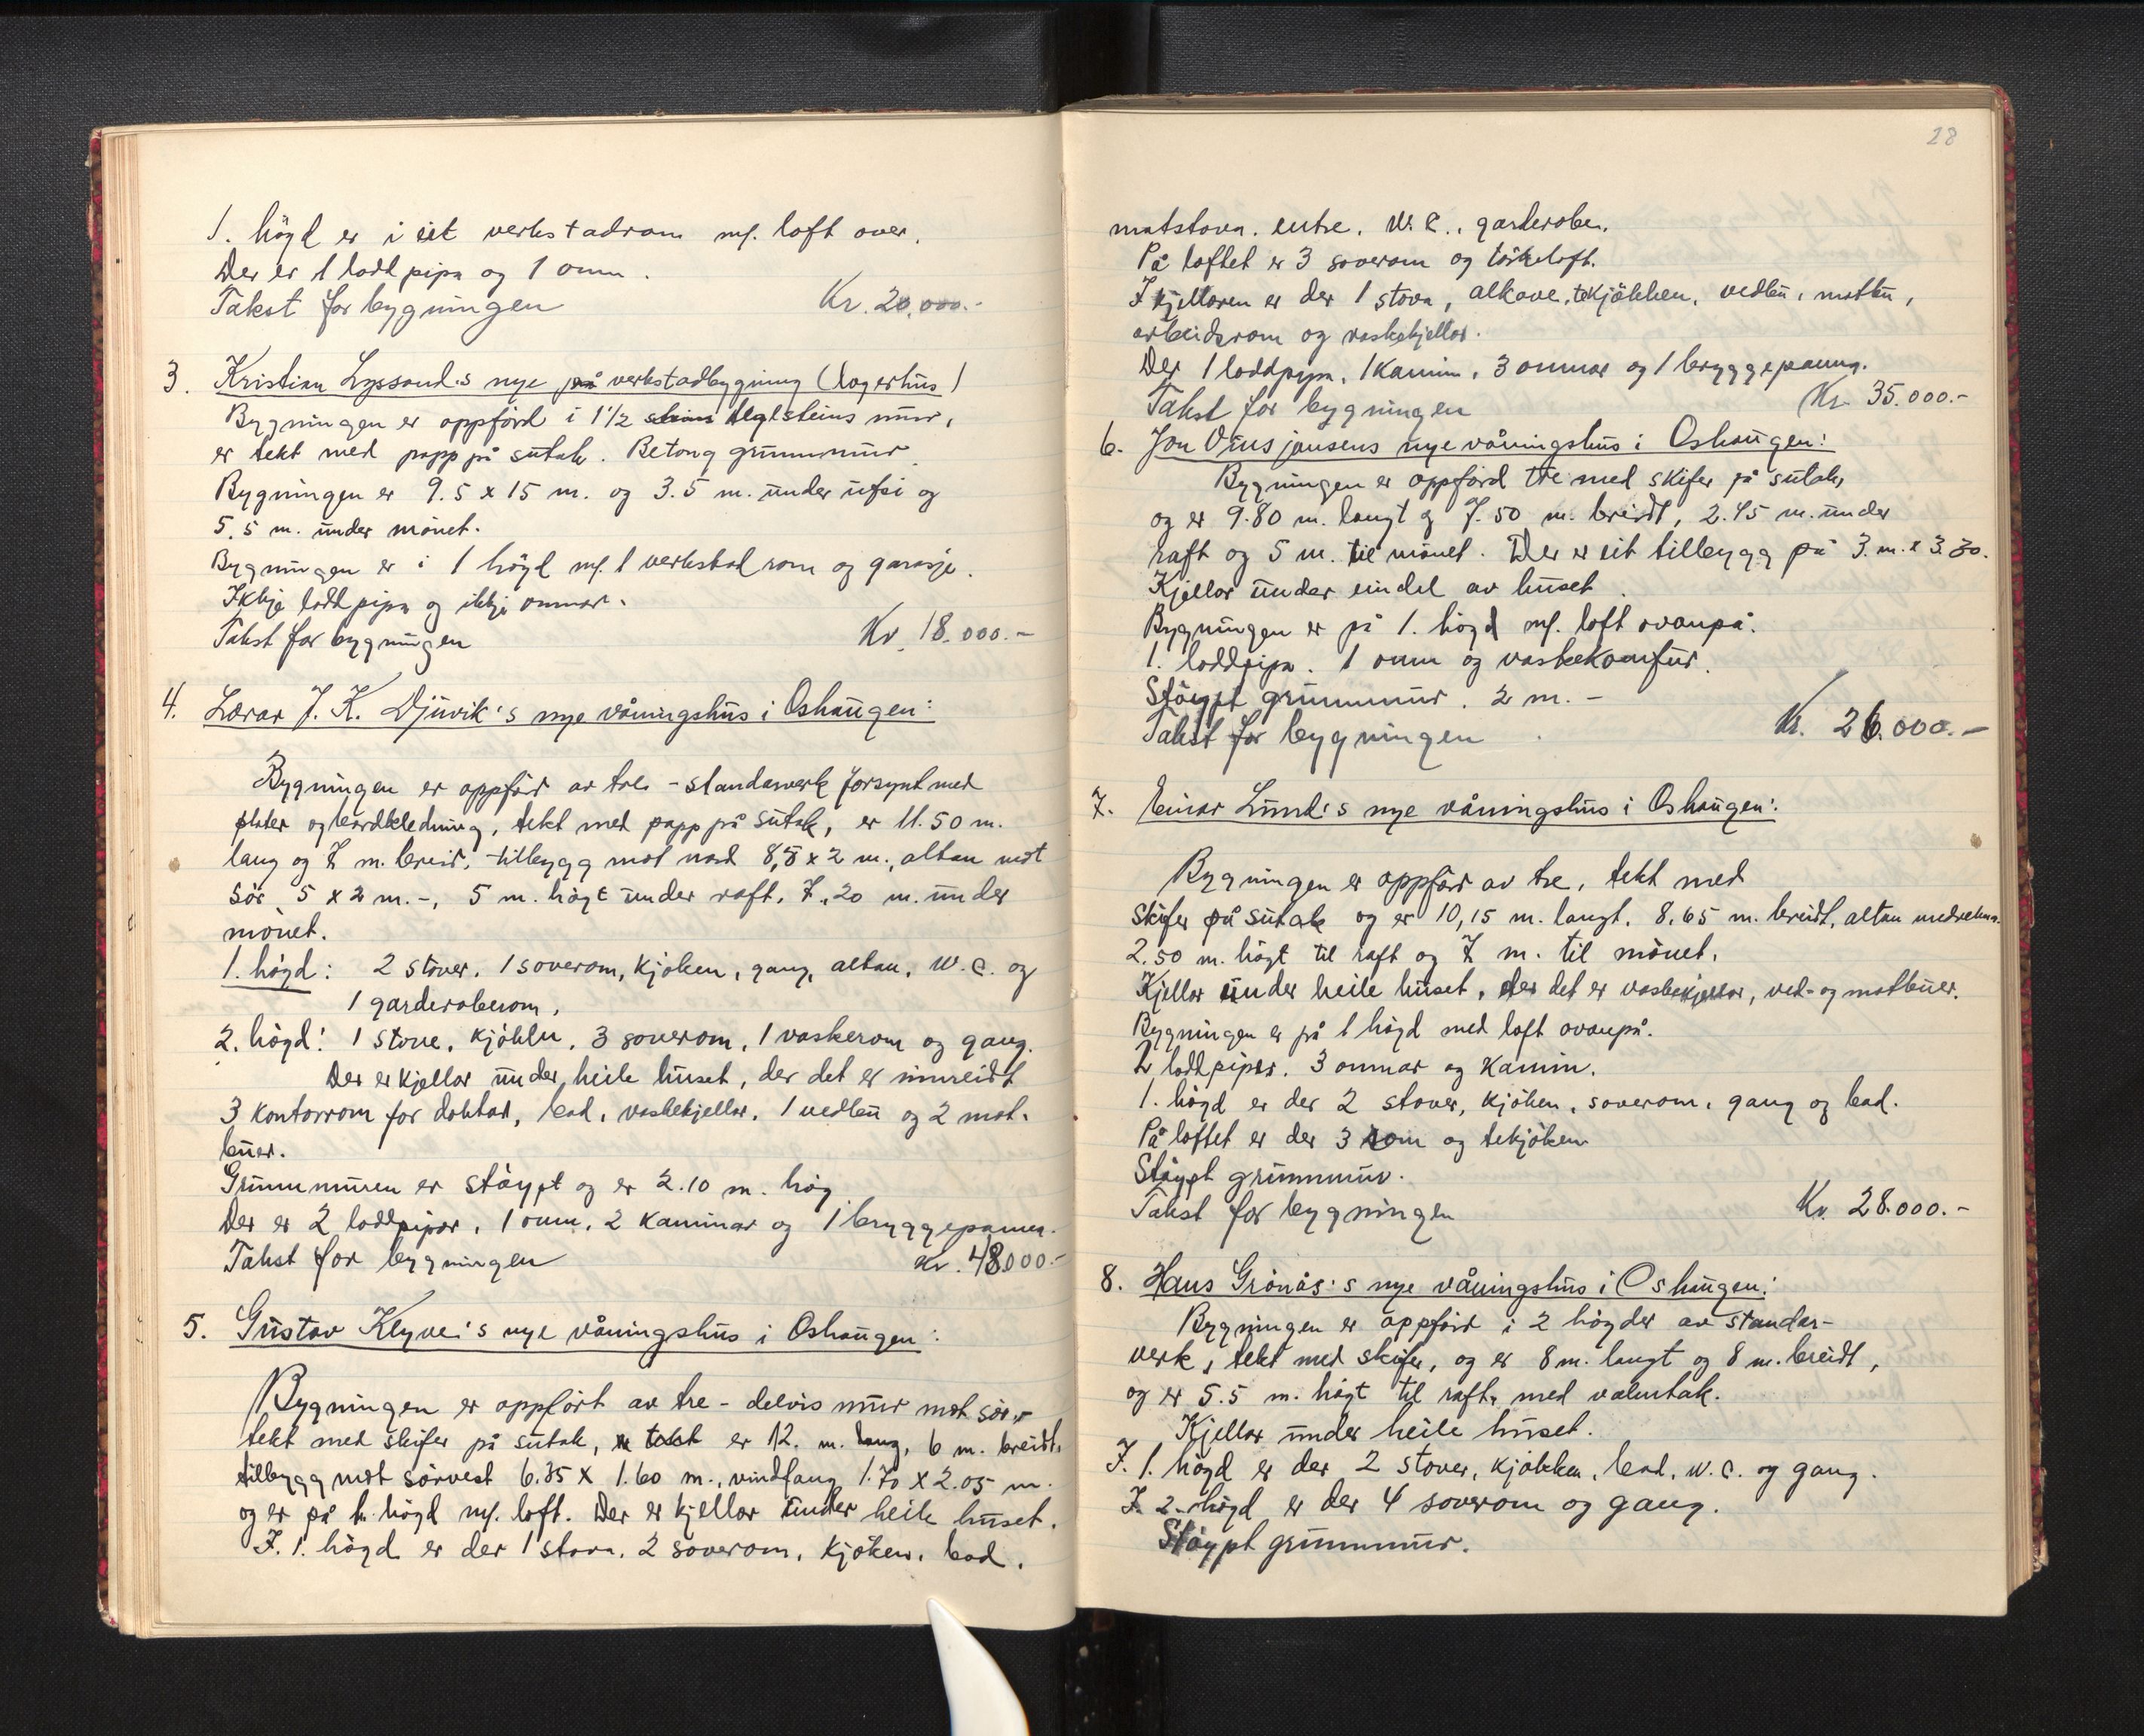 1. högd er i eit verkstadrom m/. loft over.
Der er 1 loddpipa og 1 omn.
Takst for bygningen Kr. 20.000.-
3. Kristian Lyssand's nye på verkstadbygning (lagerhus)
Bygningen er oppförd i 1½ stein teglsteins mur,
er tekt med papp på sutak. Betong grunnmur.
Bygningen er 9.5 x 15 m. og 3.5 m. under ufsi og
5.5 m. under mönet.
Bygningen er i 1 högd m/. 1 verkstad rom og garasje.
Ikkje loddpipa og ikkje omnar.
Takst for bygningen Kr. 18.000.-
4. Lærar J. K. Djuvik's nye våningshus i Oshaugen:
Bygningen er oppförd av tre - standarverk forsynt med
plater og bordkledning, tekt med papp på sutak, er 11.50 m.
lang og 7 m. breid, tilbygg mot nord 8,8 x 2 m., altan mot
sör 5 x 2 m.-, 5 m. högt under raft, 7.20 m. under
mönet.
1. högd: 2 stover, 1 soverom, kjöken, gang, altan, W.C. og
1 garderoberom,
2. högd: 1 stove, kjökken, 3 soverom, 1 vaskerom og gang.
Der er kjellar under heile huset, der det er innreidt
3 kontorrom for doktar, bad, vaskekjellar, 1 vedbu og 2 mat-
buer.
Grunnmuren er stöypt og er 2.10 m. hög
Der er 2 loddpipor, 1 omn, 2 kaminar og 1 bryggepanna.
Takst for bygningen Kr. 48.000.-
5. Gustav Klyve's nye våningshus i Oshaugen:
Bygningen er oppfört av tre - delvis mur mot sör,-
tekt med skifer på sutak, er 12. m. lang, 6 m. breidt,
tilbygg mot sörvest 6.35 x 1.60 m., vindfang 1.70 x 2.05 m.
og er på 1. högd m/. loft. Der er kjellar under heile huset.
I. 1. högd er der 1 stova, 2 soverom, kjöken, bad,
28
matstova, entre, W.C., garderobe.
På loftet er 3 soverom og törkeloft.
I kjellaren er der 1 stova, alkove, tekjökken, vedbu, matbu,
arbeidsrom og vaskekjellar.
Der 1 loddpipa, 1 kamin, 3 omnar og 1 bryggepanna.
Takst for bygningen Kr. 35.000.-
6. Jon Ousjansens nye våningshus i Oshaugen:
Bygningen er oppförd tre med skifer på sutak,
og er 9.80 m. langt og 7.50 m. breidt, 2.45 m. under
raft og 5 m. til mönet. Der er eit tilbygg på 3. m. x 3.30.
Kjellar under eindel av huset.
Bygningen er på 1. högd m/. loft ovanpå.
1. loddpipa. 1 omn og vaskekomfur.
Stöypt grunnmur. 2 m. -
Takst for bygningen Kr. 26.000.-
7. Einar Lund's nye våningshus i Oshaugen:
Bygningen er oppförd av tre, tekt med
skifer på sutak og er 10,15 m. langt, 8.65 m. breidt, altan medrekna.
2.50 m. högt til raft og 7 m. til mönet.
Kjellar under heile huset, der det er vaskekjellar, ved- og matbuer.
Bygningen er på 1 högd med loft ovanpå.
2 loddpiper. 3 omnar og kamin.
1. högd er der 2 stover, kjöken, soverom, gang og bad.
På loftet er der 3 rom og tekjöken
Stöypt grunnmur.
Takst for bygningen Kr. 28.000.-
8. Hans Grönås's nye våningshus i Oshaugen:
Bygningen er oppförd i 2 högder av standar-
verk, tekt med skifer, og er 8 m. langt og 8 m. breidt,
og er 5.5 m. högt til raft, med valmtak.
Kjellar under heile huset.
I. 1. högd er der 2 stover, kjökken, bad, W.C. og gang.
I. 2. högd er der 4 soverom og gang.
Stöypt grunnmur.